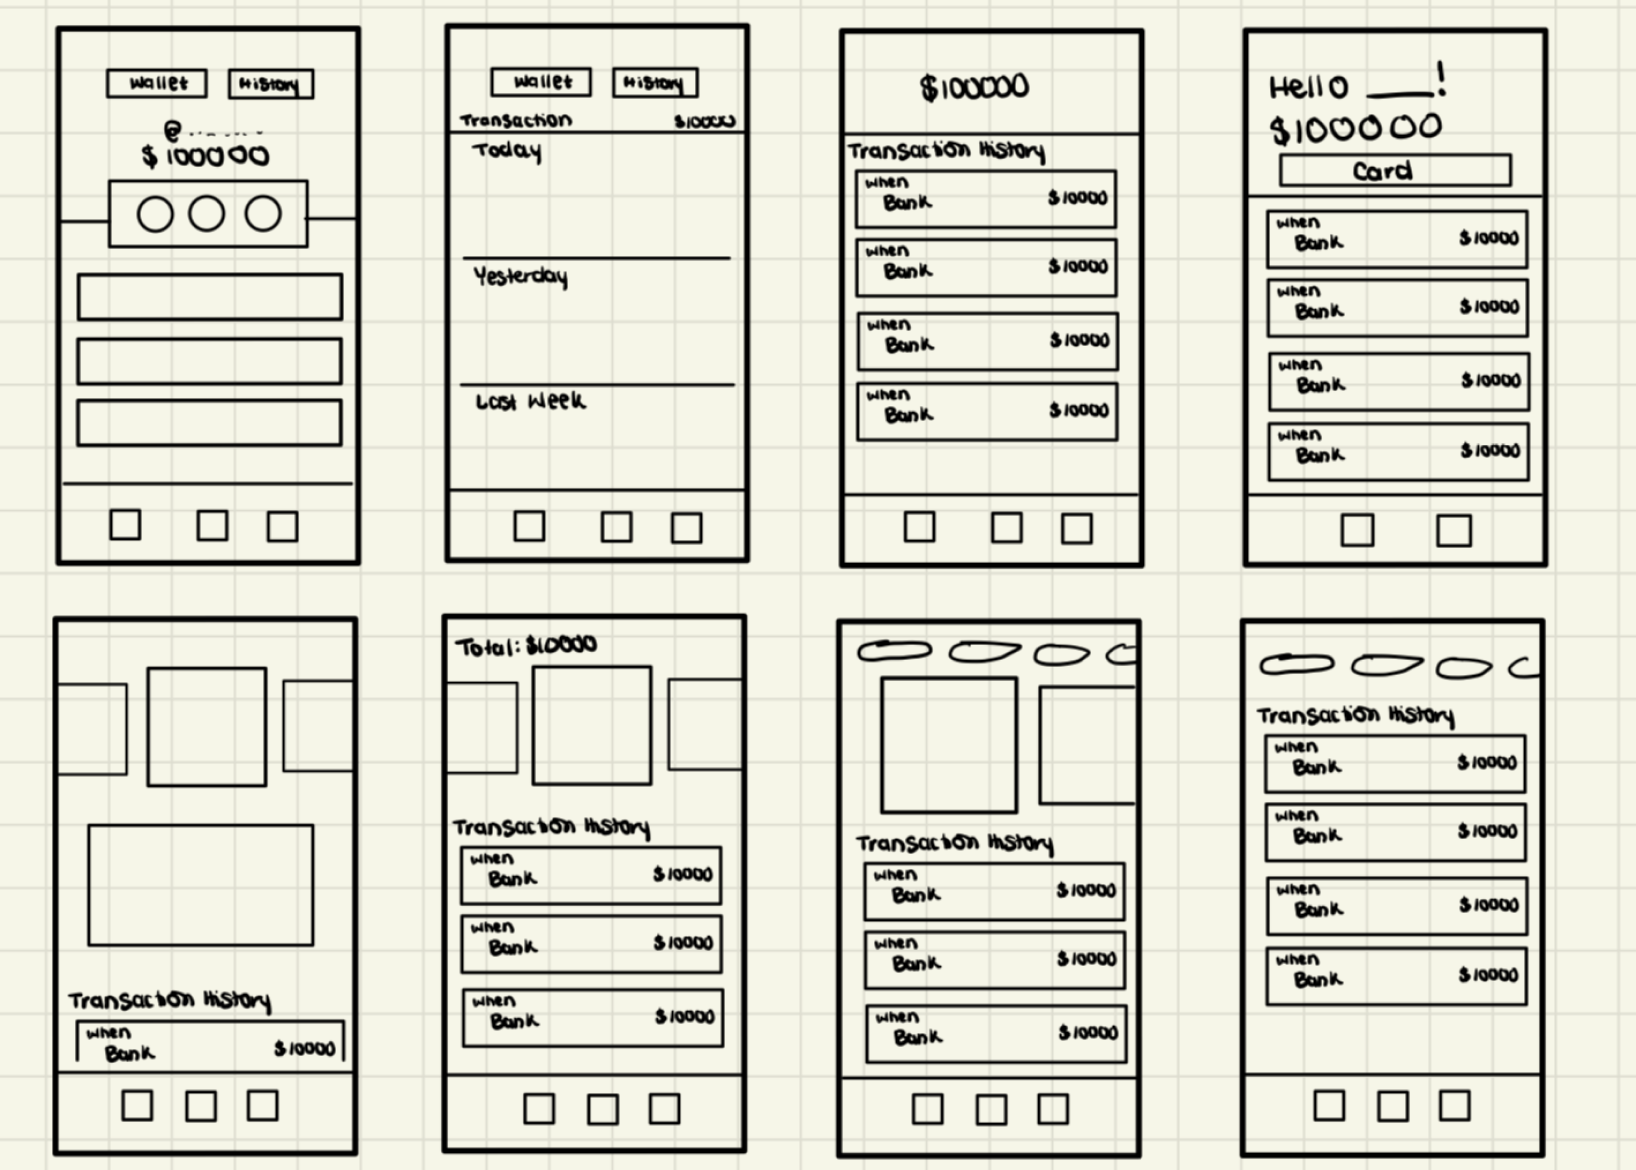 Wallet History
@ - - - - - -
$100000
Wallet History
Transaction $10000
Today
Yesterday
Last Week
$100000
Transaction History
When
Bank $10000
When
Bank $10000
When
Bank $10000
When
Bank $10000
Hello ____!
$100000
Card
When
Bank $10000
When
Bank $10000
When
Bank $10000
When
Bank $10000
Transaction History
When
Bank $10000
Total: $10000
Transaction History
When
Bank $10000
When
Bank $10000
When
Bank $10000
Transaction History
When
Bank $10000
When
Bank $10000
When
Bank $10000
Transaction History
When
Bank $10000
When
Bank $10000
When
Bank $10000
When
Bank $10000